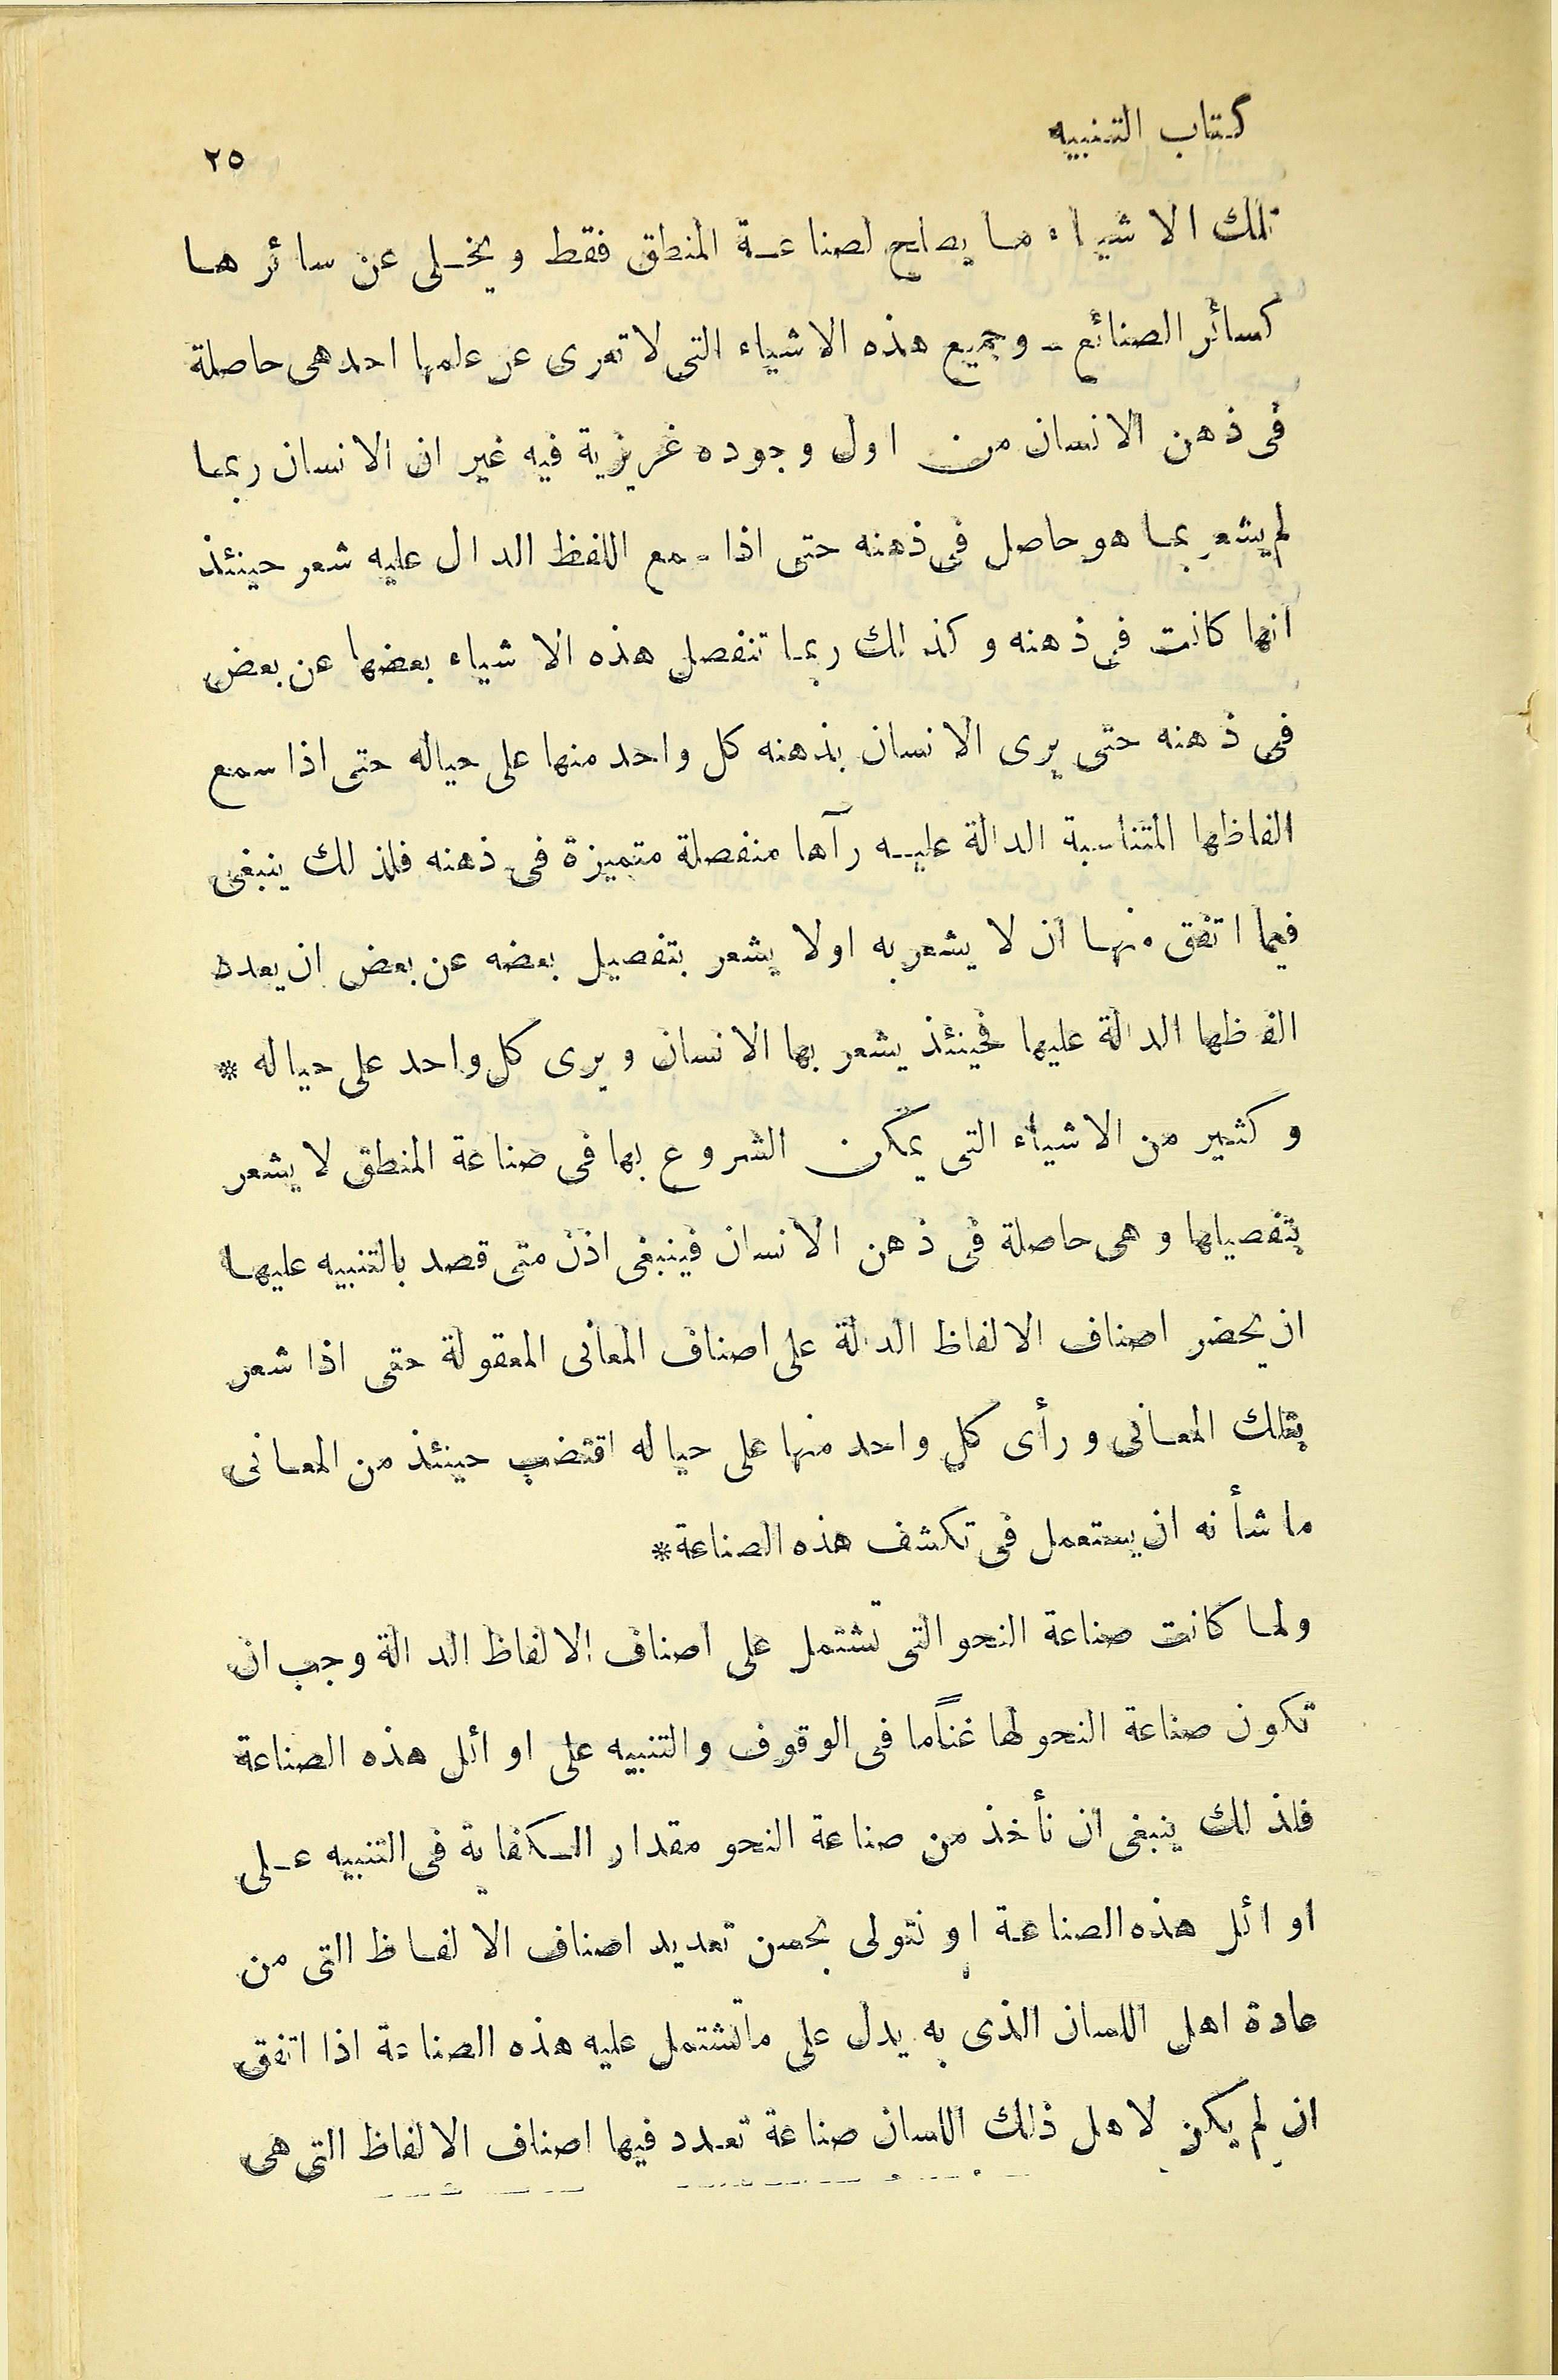 كتاب التنبيه
٢٥
تلك الاشياء ما يصلح لصناعة المنطق فقط ويخلى عن سائرها
كسائر الصنائع ـ وجميع هذه الاشياء التى لا تعرى عن علمها احد هى حاصلة
فى ذهن الانسان من اول وجوده غريزية فيه غير ان الانسان ربما
لم يشعر بما هو حاصل فى ذهنه حتى اذا سمع اللفظ الدال عليه شعر حينئذ
انها كانت فى ذهنه وكذلك ربما تنفصل هذه الاشياء بعضها عن بعض
فى ذهنه حتى يرى الانسان بذهنه كل واحد منها على حياله حتى اذا سمع
الفاظها المتناسبة الدالة عليه رآها منفصلة متميزة فى ذهنه فلذلك ينبغى
فيما اتفق منها ان لا يشعر به اولا يشعر بتفصيل بعضه عن بعض ان يعدد
الفاظها الدالة عليها فحينئذ يشعر بها الانسان ويرى كل واحد على حياله *
وكثير من الاشياء التى يمكن الشروع بها فى صناعة المنطق لا يشعر
بتفصيلها وهى حاصلة فى ذهن الانسان فينبغى اذن متى قصد بالتنبيه عليها
ان يحضر اصناف الالفاظ الدالة على اصناف المعانى المعقولة حتى اذا شعر
بتلك المعانى ورأى كل واحد منها على حياله اقتضب حينئذ من المعانى
ما شأنه ان يستعمل فى تكشف هذه الصناعة *
ولما كانت صناعة النحو التى تشتمل على اصناف الالفاظ الدالة وجب ان
تكون صناعة النحو لها غناًما فى الوقوف والتنبيه على اوائل هذه الصناعة
فلذلك ينبغى ان نأخذ من صناعة النحو مقدار الكفاية فى التنبيه على
اوائل هذه الصناعة او نتولى بحسن تعديد اصناف الالفاظ التى من
عادة اهل اللسان الذى به يدل على ما تشتمل عليه هذه الصناعة اذا اتفق
ان لم يكن لاهل ذلك اللسان صناعة تعدد فيها اصناف الالفاظ التى هى